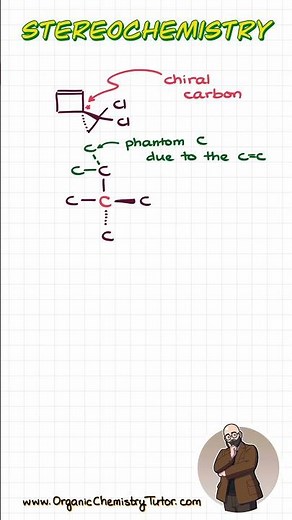 STEREOCHEMISTRY
chiral
carbon
Cl
Cl
C
phantom C
due to the C=C
C-C
C-C-C
C
www.OrganicChemistryTutor.com